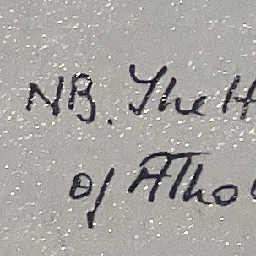 NB. The H
of Atho